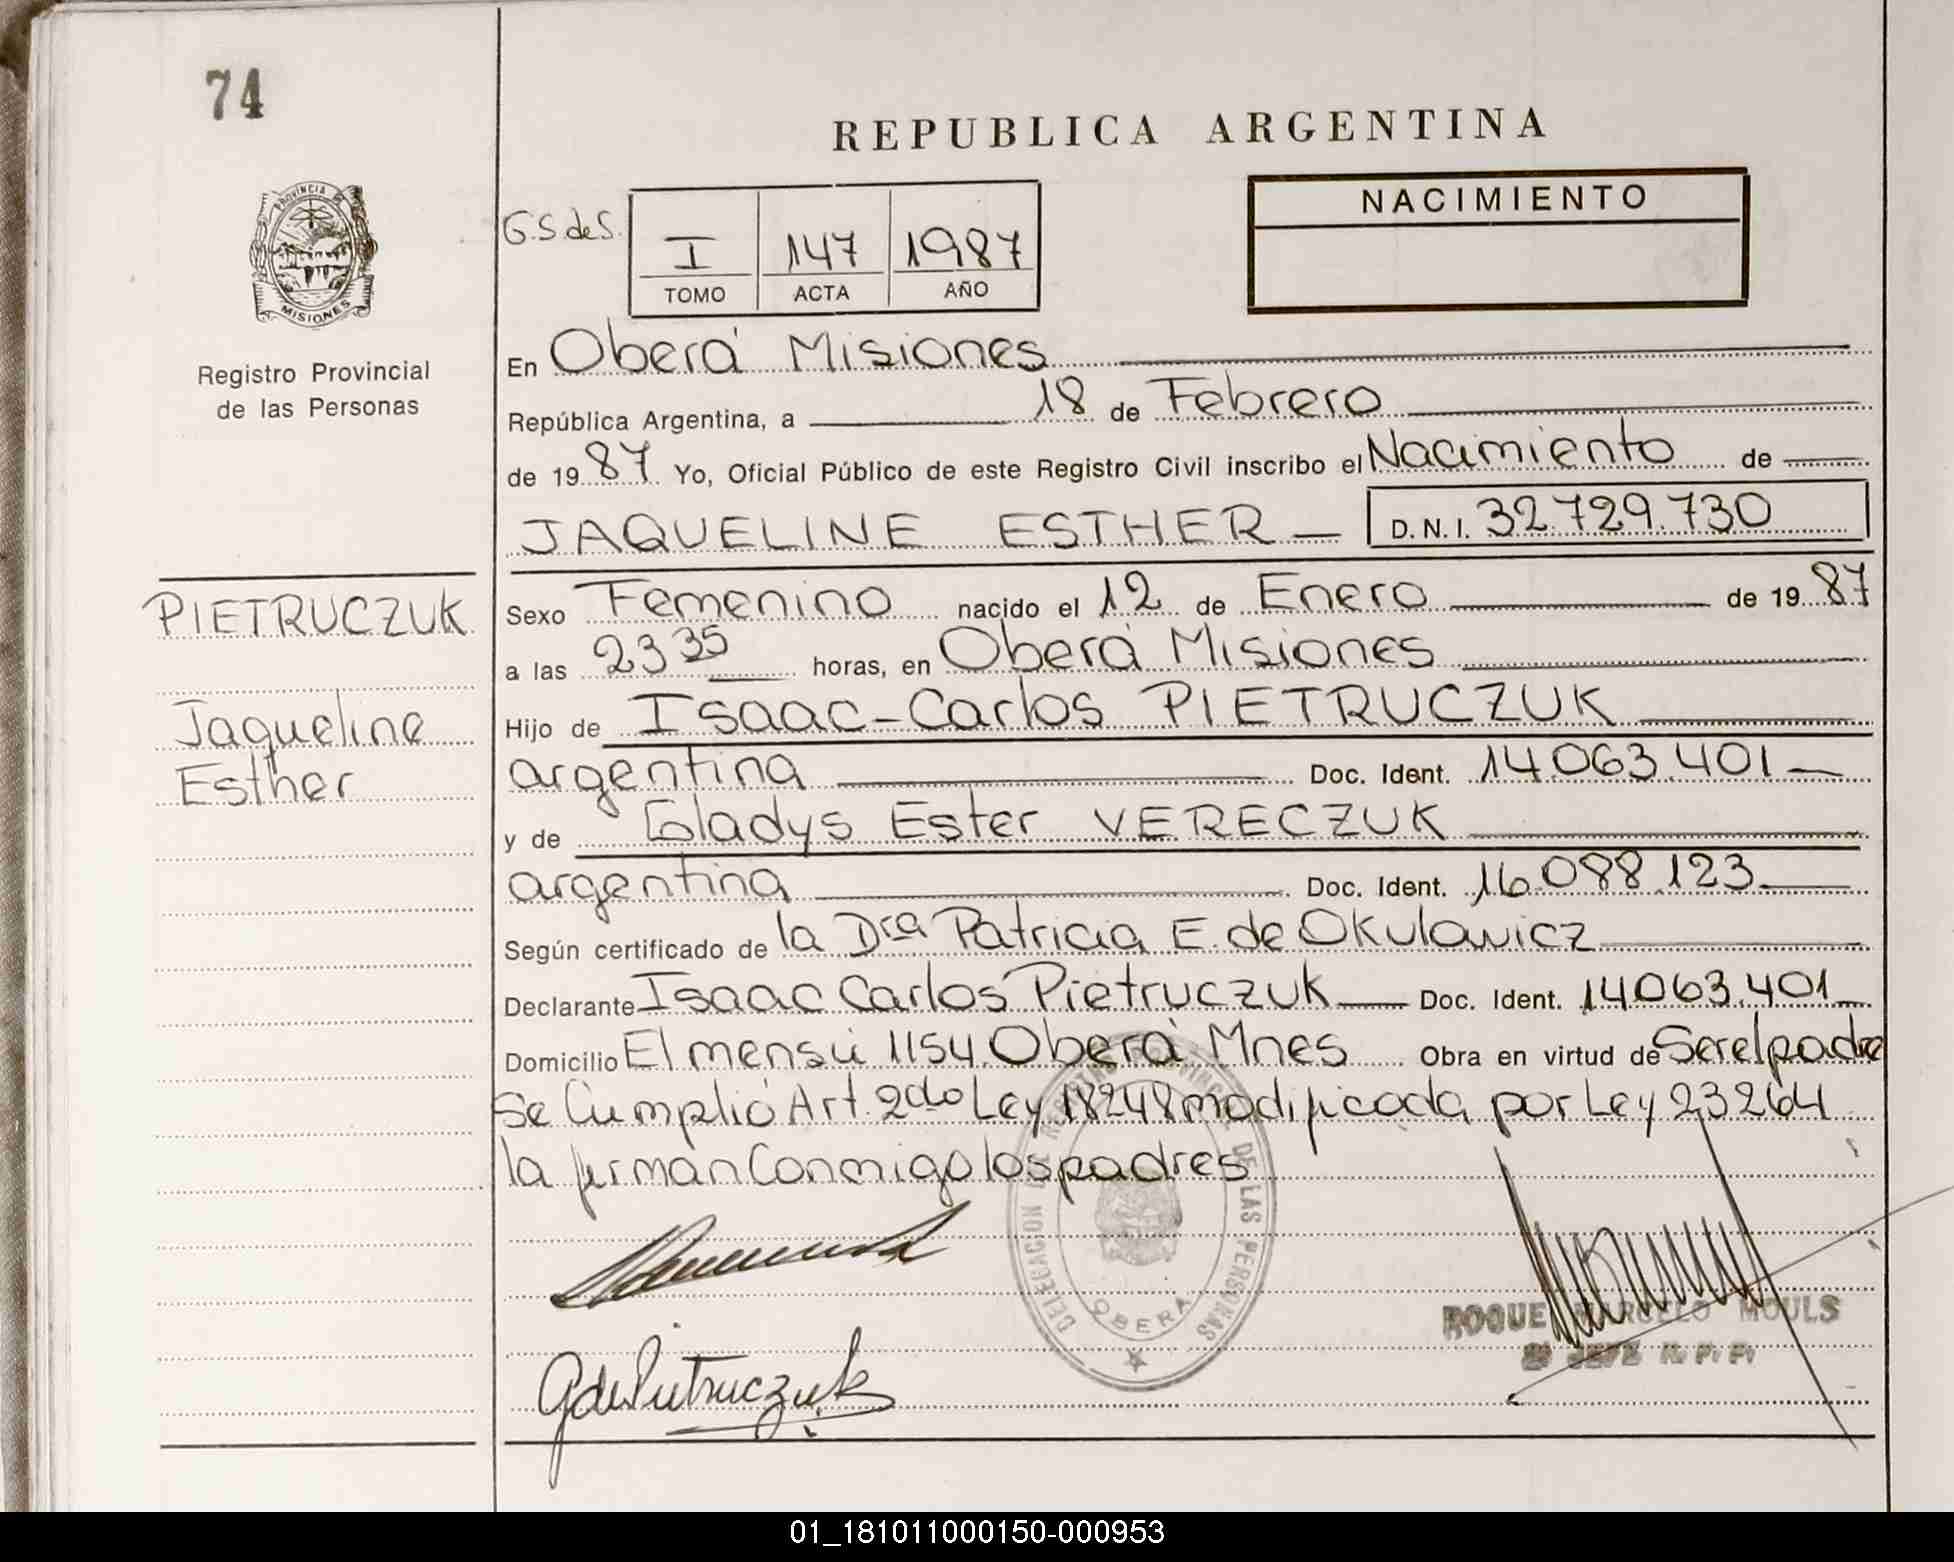 74
REPUBLICA ARGENTINA
PROVINCIA DE
MISIONES
G.S de S.
I 147 1987
TOMO ACTA AÑO
NACIMIENTO
Registro Provincial
de las Personas
En Oberá Misiones
República Argentina, a 18 de Febrero
de 1987 Yo, Oficial Público de este Registro Civil inscribo el Nacimiento de
JAQUELINE ESTHER D.N.I. 32.729.730
PIETRUCZUK
Jaqueline
Esther
Sexo Femenino nacido el 12 de Enero de 1987
a las 23 35 horas, en Oberá Misiones
Hijo de Isaac-Carlos PIETRUCZUK
argentina Doc. Ident. 14.063.401
y de Gladys Ester VERECZUK
argentina Doc. Ident. 16.088.123
Según certificado de la Dra Patricia E. de Okulovicz
Declarante Isaac Carlos Pietruczuk Doc. Ident. 14063.401
Domicilio El mensú 1154. Oberá Mnes Obra en virtud de Ser el padre
Se Cumplió Art. 2do Ley 18248 modificada por Ley 23264
la firman Conmigo los padres
DELEGACION DE REGISTRO PROVINCIAL DE LAS PERSONAS
OBERA
G de Pietruczuk
ROQUE MARCELO MOULS
JEFE R. P. P.
01_181011000150-000953